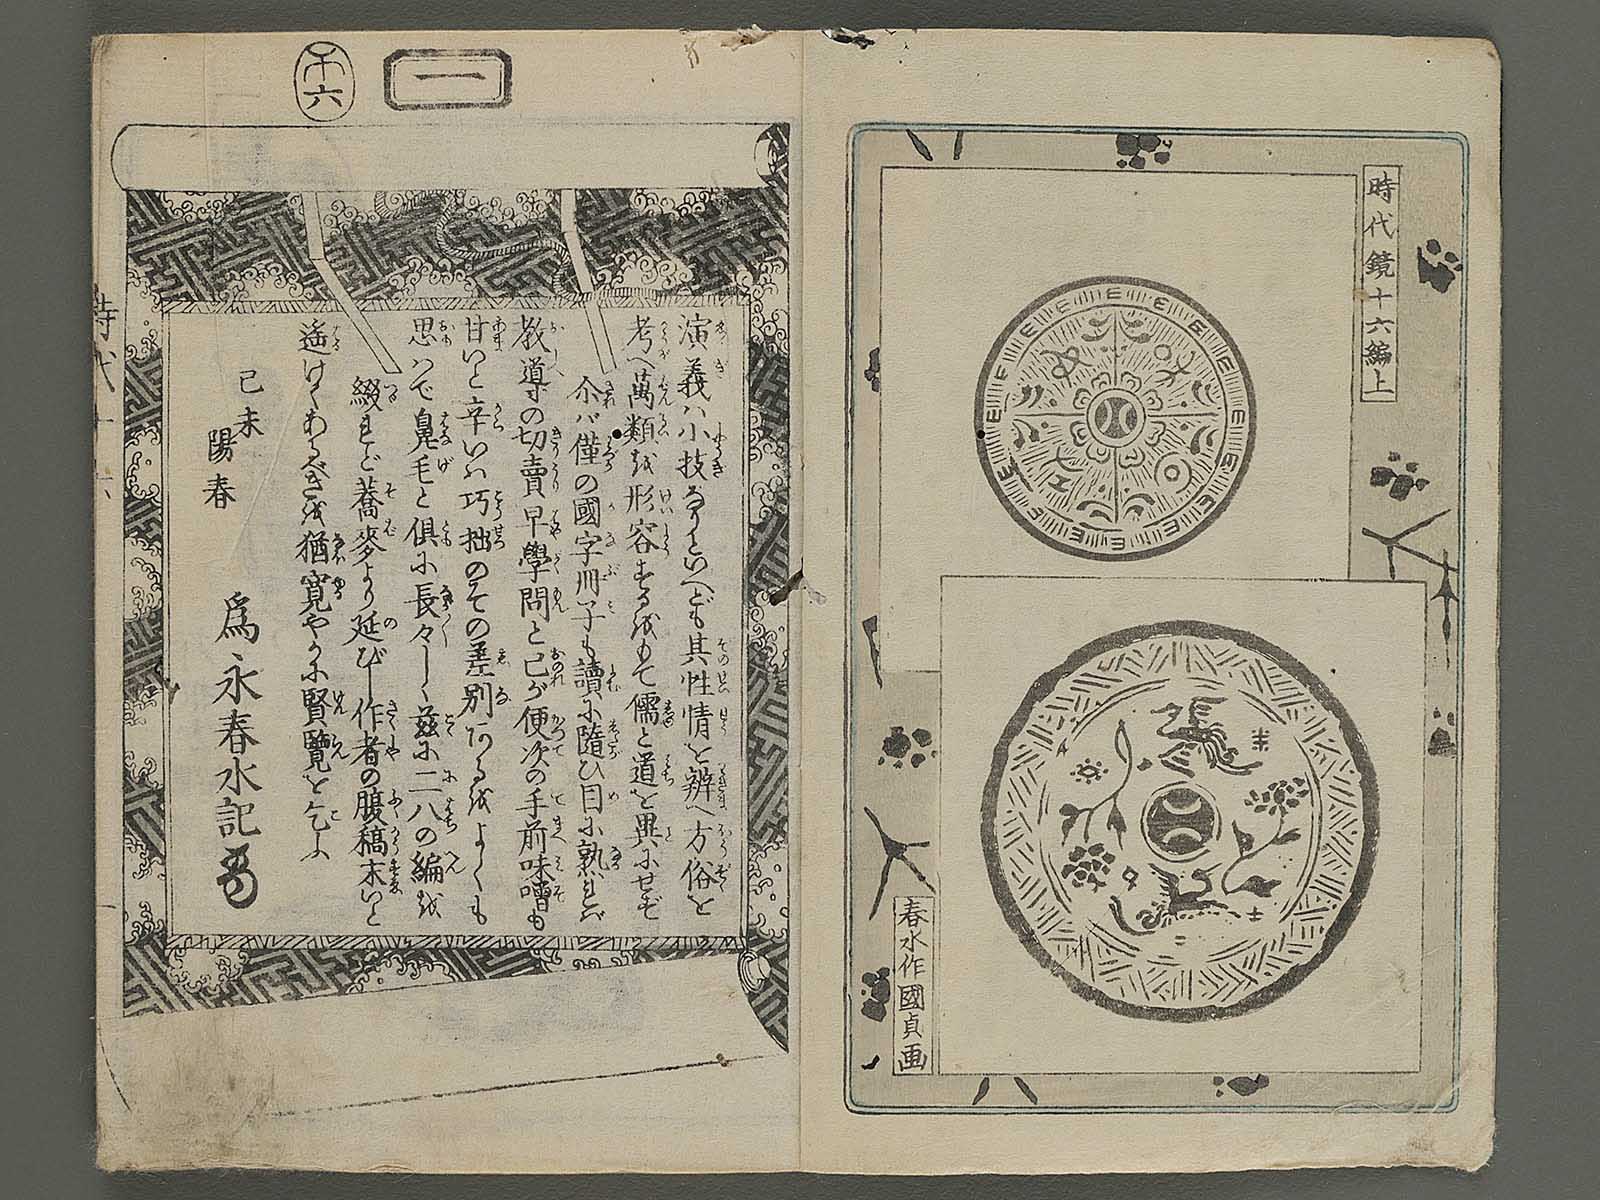 時代鏡十六編上
春水作國貞画
一
十六
演義ハ小技なりといへども其性情を辨へ方俗を
考へ萬類を形容するをもて儒と道を異にせず
尒バ僅の國字冊子も讀に隨ひ目に熟るれば
教導の切賣早學問と己が便次の手前味噌も
甘いと辛いハ巧拙のその差別あるをよくも
思ハで鼻毛と倶に長々しく茲に二八の編を
綴れど蕎麥より延びし作者の腹稿末いと
遙けくあるべきを猶寛やかに賢覽を乞ふ
己未
陽春
爲永春水記